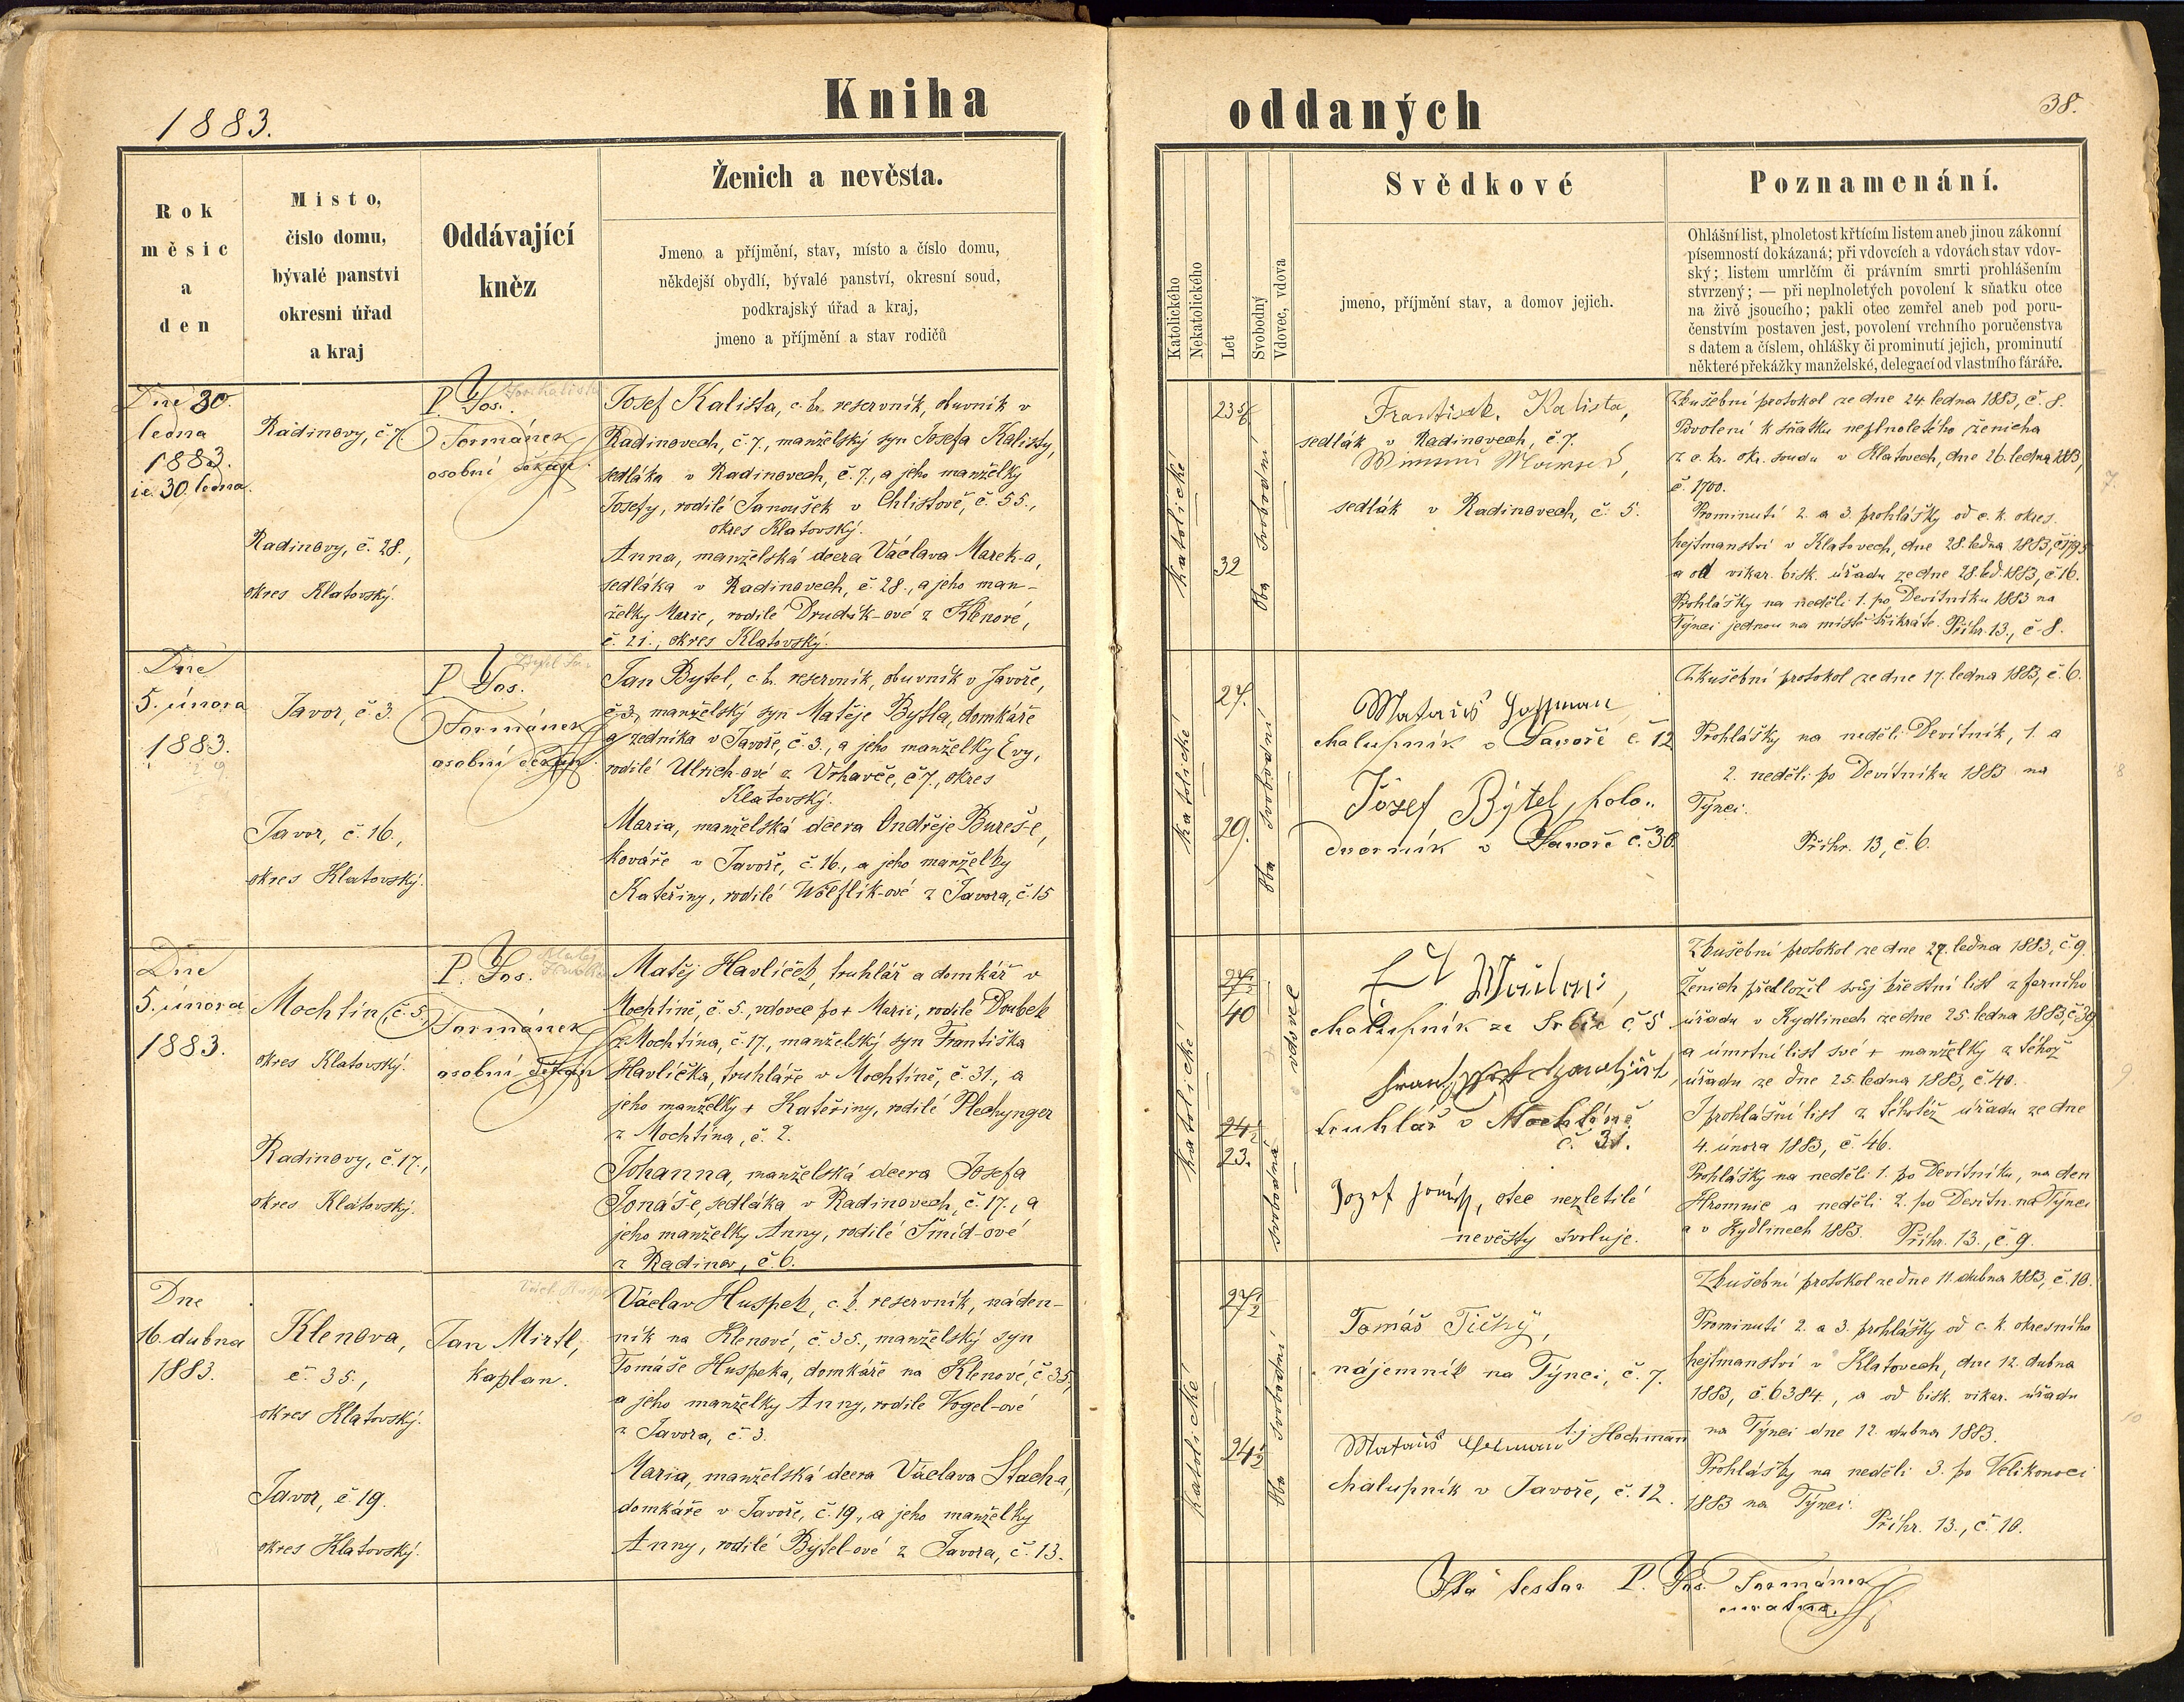 1883.
Kniha
oddaných
38.
Rok
měsíc
a
den
Místo,
číslo domu,
bývalé panství
okresní úřad
a kraj
Oddávající
kněz
Ženich a nevěsta.
Jmeno a příjmění, stav, místo a číslo domu,
někdejší obydlí, bývalé panství, okresní soud,
podkrajský úřad a kraj,
jmeno a příjmění a stav rodičů
Katolického
Nekatolického
Let
Svobodný
Vdovec, vdova
Svědkové
jmeno, příjmění stav, a domov jejich.
Poznamenání.
Ohlášní list, plnoletost křtícím listem aneb jinou zákonní
písemností dokázaná; při vdovcích a vdovách stav vdov-
ský; listem umrlčím či právním smrti prohlášením
stvrzený; — při neplnoletých povolení k sňatku otce
na živě jsoucího; pakli otec zemřel aneb pod poru-
čenstvím postaven jest, povolení vrchního poručenstva
s datem a číslem, ohlášky či prominutí jejich, prominutí
některé překážky manželské, delegací od vlastního faráře.
Dne 30.
ledna
1883.
i.e. 30. ledna.
Radinovy, č. 7.
Radinovy, č. 28.,
okres Klatovský.
P. Jos.
Tormánek
osobní děkan.
Josef Kalista, c. kr. reservník, obuvník v
Radinovech, č. 7., manželský syn Josefa Kalisty,
sedláka v Radinovech, č. 7., a jeho manželky
Josefy, rodilé Janoušek v Chlistově, č. 55.,
okres Klatovský.
Anna, manželská dcera Václava Marek-a,
sedláka v Radinovech, č. 28., a jeho man-
želky Marie, rodilé Drudík-ové z Klenové,
č. 21., okres Klatovský.
katolické
23
32
oba svobodní
František Kalista,
sedlák v Radinovech, č. 7.
sedlák v Radinovech, č. 5.
Zkušební protokol ze dne 24 ledna 1883, č. 8.
Povolení k sňatku neplnoletého ženicha
z c. kr. okr. soudu v Klatovech, dne 26. ledna 1883,
č. 1700.
Prominutí 2. a 3. prohlášky od c. k. okres.
hejtmanství v Klatovech, dne 28. ledna 1883,
a od vikar. bisk. úřadu ze dne 28. led. 1883, č. 16.
Prohlášky na neděli 1. po Devítníku 1883 na
Týnci jednou na místě třikráte. Příhr. 13., č. 8.
Dne
5. února
1883.
Javor, č. 3.
Javor, č. 16.,
okres Klatovský.
P. Jos.
Tormánek
osobní děkan
Jan Bytel, c. k. reservník, obuvník v Javoře,
č. 3., manželský syn Matěje Bytla, domkáře
a zedníka v Javoře, č. 3., a jeho manželky Evy,
rodilé Ulrich-ové z Vrhavče, č. 7., okres
Klatovský.
Maria, manželská dcera Ondřeje Bureš-e,
kováře v Javoře, č. 16., a jeho manželky
Kateřiny, rodilé Wölflík-ové z Javora, č. 15
katolické
27.
29.
oba svobodní
Matauš Hoffman
chalupník v Javoře č. 12
Jozef Bytel, polo-
dvorník v Javoře č. 30.
Zkušební protokol ze dne 17. ledna 1883, č. 6.
Prohlášky na neděli Devítník, 1. a
2. neděli po Devítníku 1883 na
Týnci.
Příhr. 13, č. 6.
Dne
5. února
1883.
Mochtín, č. 5.,
okres Klatovský.
Radinovy, č. 17.,
okres Klatovský.
P. Jos.
Tormánek
osobní děkan
Matěj Havlíček, truhlář a domkář v
Mochtíně, č. 5., vdovec po + Marii, rodilé Doubek
z Mochtína, č. 17., manželský syn Františka
Havlíčka, truhláře v Mochtíně, č. 31., a
jeho manželky + Kateřiny, rodilé Plechynger
z Mochtína, č. 2.
Johanna, manželská dcera Josefa
Jonáš-e, sedláka v Radinovech, č. 17., a
jeho manželky Anny, rodilé Šmíd-ové
z Radinov, č. 6.
katolické
40
23.
svobodná vdovec
chalupník ze Srbic č. 5
truhlář v Mochtíně
č. 31.
Jozef Jonáš, otec nezletilé
nevěsty svoluje.
Zkušební protokol ze dne 27. ledna 1883, č. 9.
Ženich předložil svůj křestní list z farního
úřadu v Kydlinech ze dne 25. ledna 1883, č. 39
a úmrtní list své + manželky z téhož
úřadu ze dne 25. ledna 1883, č. 40.
I prohlášní list z téhotéž úřadu ze dne
4. února 1883, č. 46.
Prohlášky na neděli 1. po Devítníku, na den
Hromnic a neděli 2. po Devítn. na Týnci
a v Kydlinech 1883. Příhr. 13., č. 9.
Dne
16. dubna
1883.
Klenova,
č. 35.,
okres Klatovský.
Javor, č. 19.
okres Klatovský.
Jan Mirtl,
kaplan.
Václav Huspek, c. k. reservník, náden-
ník na Klenové, č. 35., manželský syn
Tomáše Huspeka, domkáře na Klenové, č. 35,
a jeho manželky Anny, rodilé Vogel-ové
z Javora, č. 3.
Maria, manželská dcera Václava Stach-a,
domkáře v Javoře, č. 19., a jeho manželky
Anny, rodilé Bytel-ové z Javora, č. 13.
katolické
27½
24½
oba svobodní
Tomáš Tichý,
nájemník na Týnci, č. 7.
t. j. Hochmann
chalupník v Javoře, č. 12.
Zkušební protokol ze dne 11. dubna 1883, č. 10.
Prominutí 2. a 3. prohlášky od c. k. okresního
hejtmanství v Klatovech, dne 12. dubna
1883, č. 6384., a od bisk. vikar. úřadu
na Týnci dne 12. dubna 1883.
Prohlášky na neděli 3. po Velikonoci
1883 na Týnci.
Příhr. 13., č. 10.
Ita testor P. Jos. Tormánek
curatus.